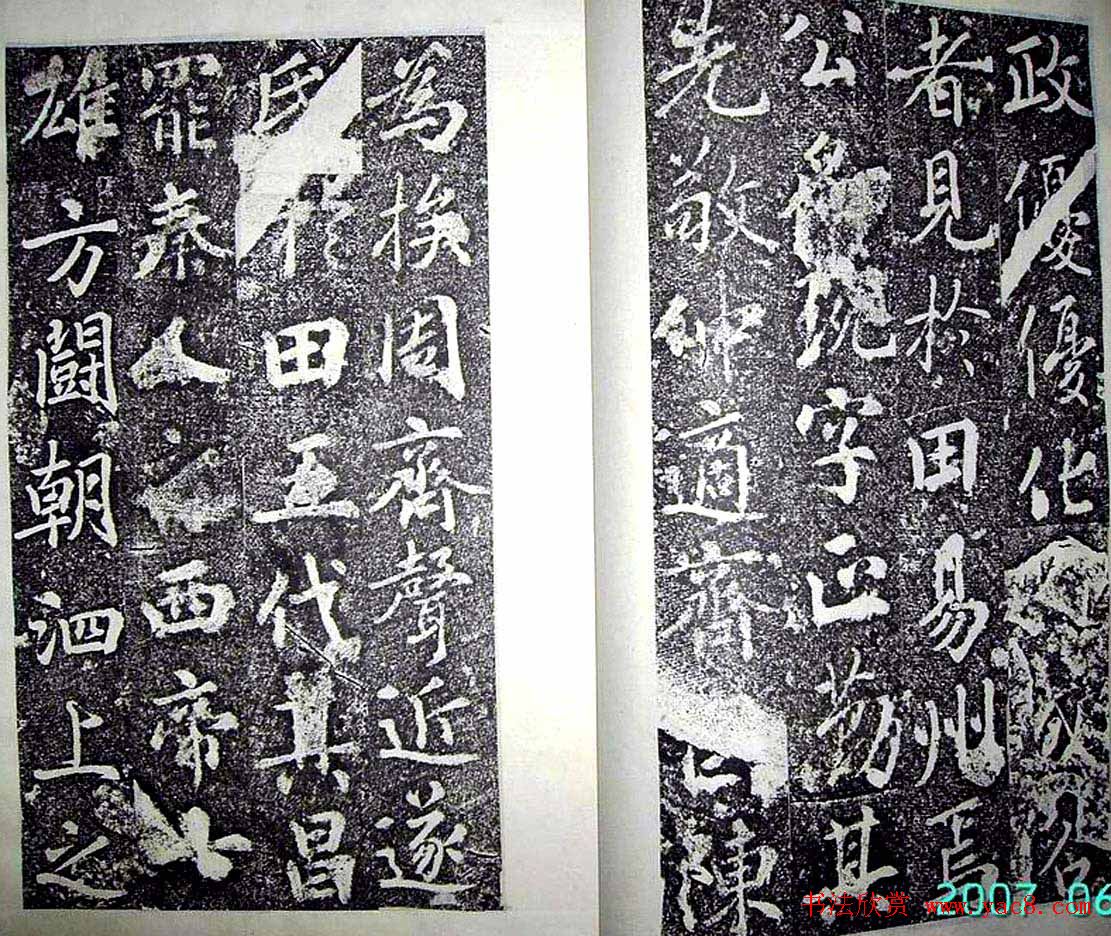 政優優化成
者見於田易州焉
公名琬字正勤其
先敬仲適齊以陳
為族周齊聲近遂
氏於田五代其昌
罷秦人之西帝七
雄方鬪朝泗上之
2007 06
书法欣赏 www.yac8.com